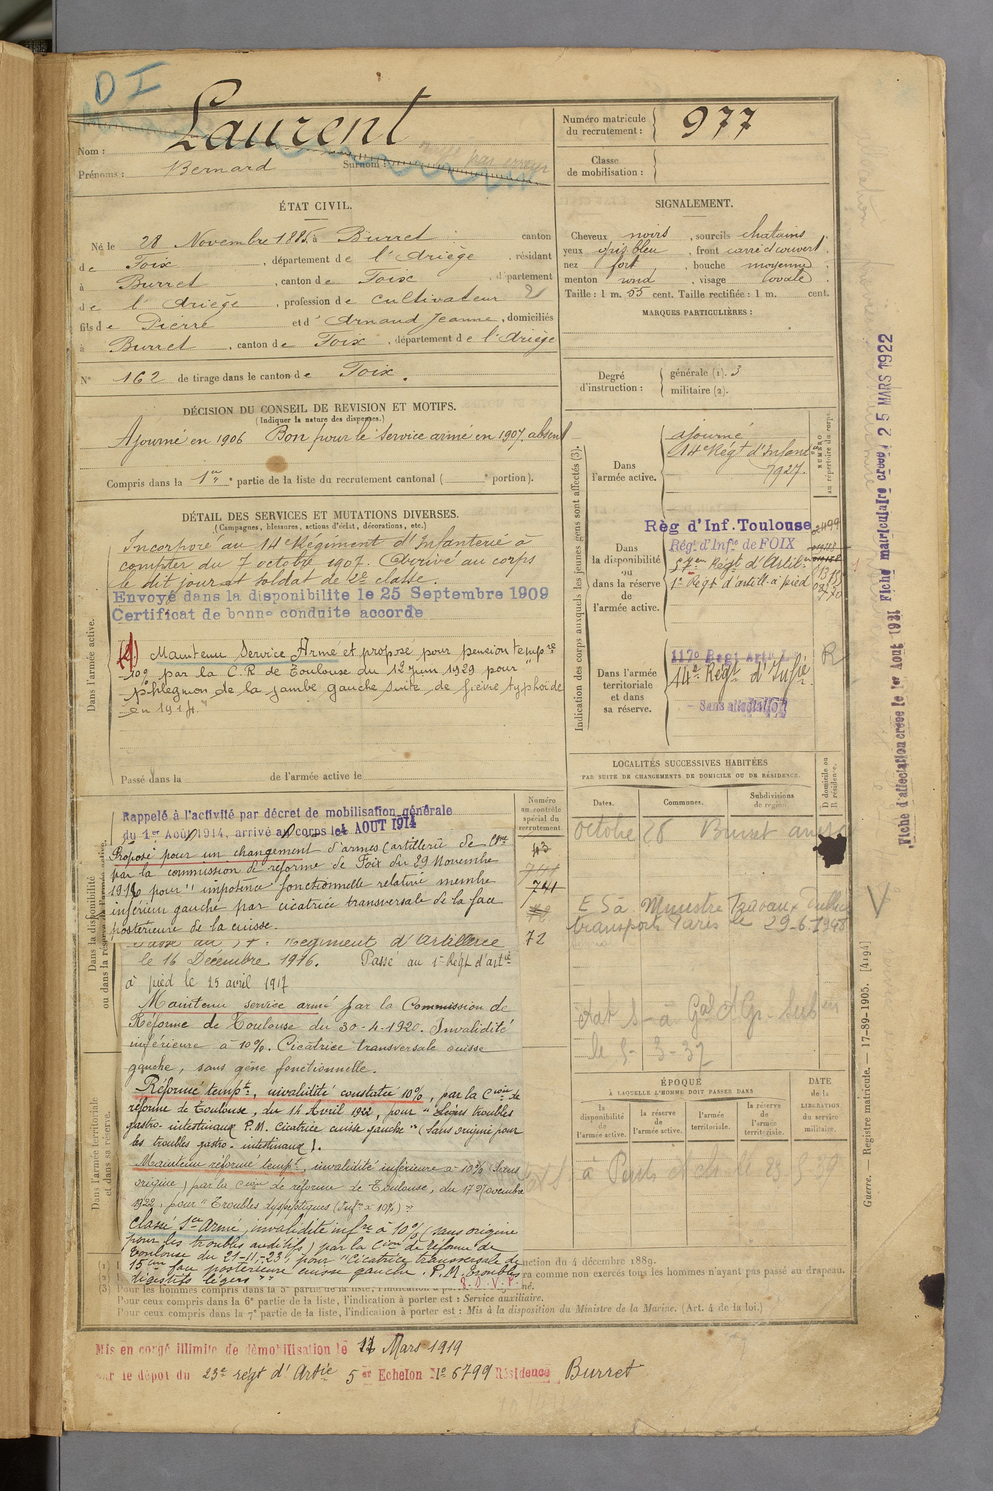 D I
Laurent
Nom :
Prénoms : Bernard Surnom :
Numéro matricule du recrutement : 977
Classe de mobilisation :
ÉTAT CIVIL.
Né le 28 Novembre 1885, à Burret canton
de Foix, département de l'Ariège, résidant
à Burret, canton de Foix, département
de l'Ariège, profession de cultivateur
fils de Pierre et d'Arnaud Jeanne, domiciliés
à Burret, canton de Foix, département de l'Ariège
N° 162 de tirage dans le canton de Foix.
SIGNALEMENT.
Cheveux noirs, sourcils chatains
yeux gris bleu, front carré et couvert
nez fort, bouche moyenne
menton rond, visage ovale
Taille : 1 m. 55 cent. Taille rectifiée : 1 m. cent.
MARQUES PARTICULIÈRES :
Degré d'instruction : générale (1). 3
militaire (2).
DÉCISION DU CONSEIL DE REVISION ET MOTIFS.
(Indiquer la nature des dispenses.)
Ajourné en 1906 Bon pour le service armé en 1907. absent
Compris dans la 1re partie de la liste du recrutement cantonal ( portion).
DÉTAIL DES SERVICES ET MUTATIONS DIVERSES.
(Campagnes, blessures, actions d'éclat, décorations, etc.)
Dans l'armée active.
Incorporé au 14e Régiment d'Infanterie à
compter du 7 octobre 1907. Arrivé au corps
le dit jour et soldat de 2e classe.
Envoyé dans la disponibilité le 25 Septembre 1909
Certificat de bonne conduite accordé
Maintenu Service Armé et proposé pour pension tempre
10% par la C.R de Toulouse du 12 juin 1929 pour
"phlegmon de la jambe gauche suite de fièvre typhoïde
en 1914."
Passé dans la de l'armée active le
Indication des corps auxquels les jeunes gens sont affectés (3).
NUMÉRO au répertoire du corps.
Dans l'armée active.
ajourné
14e Régt d'Infant
7927.
Dans la disponibilité ou dans la réserve de l'armée active.
Règ d'Inf. Toulouse
Régt d'Infie de FOIX
57e Régt d'Artil
1er Régt d'artill. à pied
Dans l'armée territoriale et dans sa réserve.
117e Regt Artie L
14e Régt d'Infie
Sans affectation
R
Fiche d'affectation créée le 1er Aout 1921 Fiche matriculaire créée 25 MARS 1922
LOCALITÉS SUCCESSIVES HABITÉES
PAR SUITE DE CHANGEMENTS DE DOMICILE OU DE RÉSIDENCE.
Dates. Communes. Subdivisions de région. D domicile ou R résidence.
octobre 28 Burret
ES à Ministre Travaux Publics
transports Paris le 29-6-1948
le 5-3-37
Numéro au contrôle spécial du recrutement.
43
741
72
Dans la disponibilité ou dans la réserve
Rappelé à l'activité par décret de mobilisation générale
du 1er Août 1914, arrivé au corps le 4 AOUT 1914
Proposé pour un changement d'armes (artillerie de Cgne
par la commission de réforme de Foix du 29 Novembre
1916 pour "impotence fonctionnelle relative membre
inférieur gauche par cicatrice transversale de la face
postérieure de la cuisse.
Passé au 57e Régiment d'Artillerie
le 16 Décembre 1916. Passé au 1er Régt d'artie
à pied le 25 avril 1917
Maintenu service armé par la Commission de
Réforme de Toulouse du 30-4-1920. Invalidité
inférieure à 10%. Cicatrice transversale cuisse
gauche, sans gêne fonctionnelle.
Dans l'armée territoriale et dans sa réserve.
Réformé tempt, invalidité constatée 10%, par la Cion de
réforme de Toulouse, du 14 Avril 1922, pour "Légers troubles
gastro-intestinaux P.M. cicatrice cuisse gauche" (Sans origine pour
les troubles gastro-intestinaux).
Maintenu réformé tempt, invalidité inférieure à 10% (Sans
origine) par la Cion de réforme de Toulouse, du 17 Novembre
1922, pour "Troubles dyspeptiques (Inf. à 10%)"
Classé Sce Armé, invalidité infre à 10% (sans origine
pour les troubles auditifs) par la Cion de Réforme de
Toulouse du 21-11-23, pour "Cicatrice transversale de
15 cm face postérieure cuisse gauche. P.M. Troubles
digestifs légers"
T.S.V.P.
ÉPOQUE
À LAQUELLE L'HOMME DOIT PASSER DANS
la disponibilité de l'armée active.
la réserve de l'armée active.
l'armée territoriale.
la réserve de l'armée territoriale.
DATE de la LIBÉRATION du service militaire.
ruction du 4 décembre 1889.
ra comme non exercés tous les hommes n'ayant pas passé au drapeau.
(3) Pour les hommes compris dans la 5e partie de la liste, l'indication à
Pour ceux compris dans la 6e partie de la liste, l'indication à porter est : Service auxiliaire.
Pour ceux compris dans la 7e partie de la liste, l'indication à porter est : Mis à la disposition du Ministre de la Marine. (Art. 4 de la loi.)
Guerre. — Registre matricule. — 17-89-1905. [4194]
Mis en congé illimité de démobilisation le 17 Mars 1919
par le dépôt du 23e régt d'Artie 5er Echelon No 6799 Résidence Burret